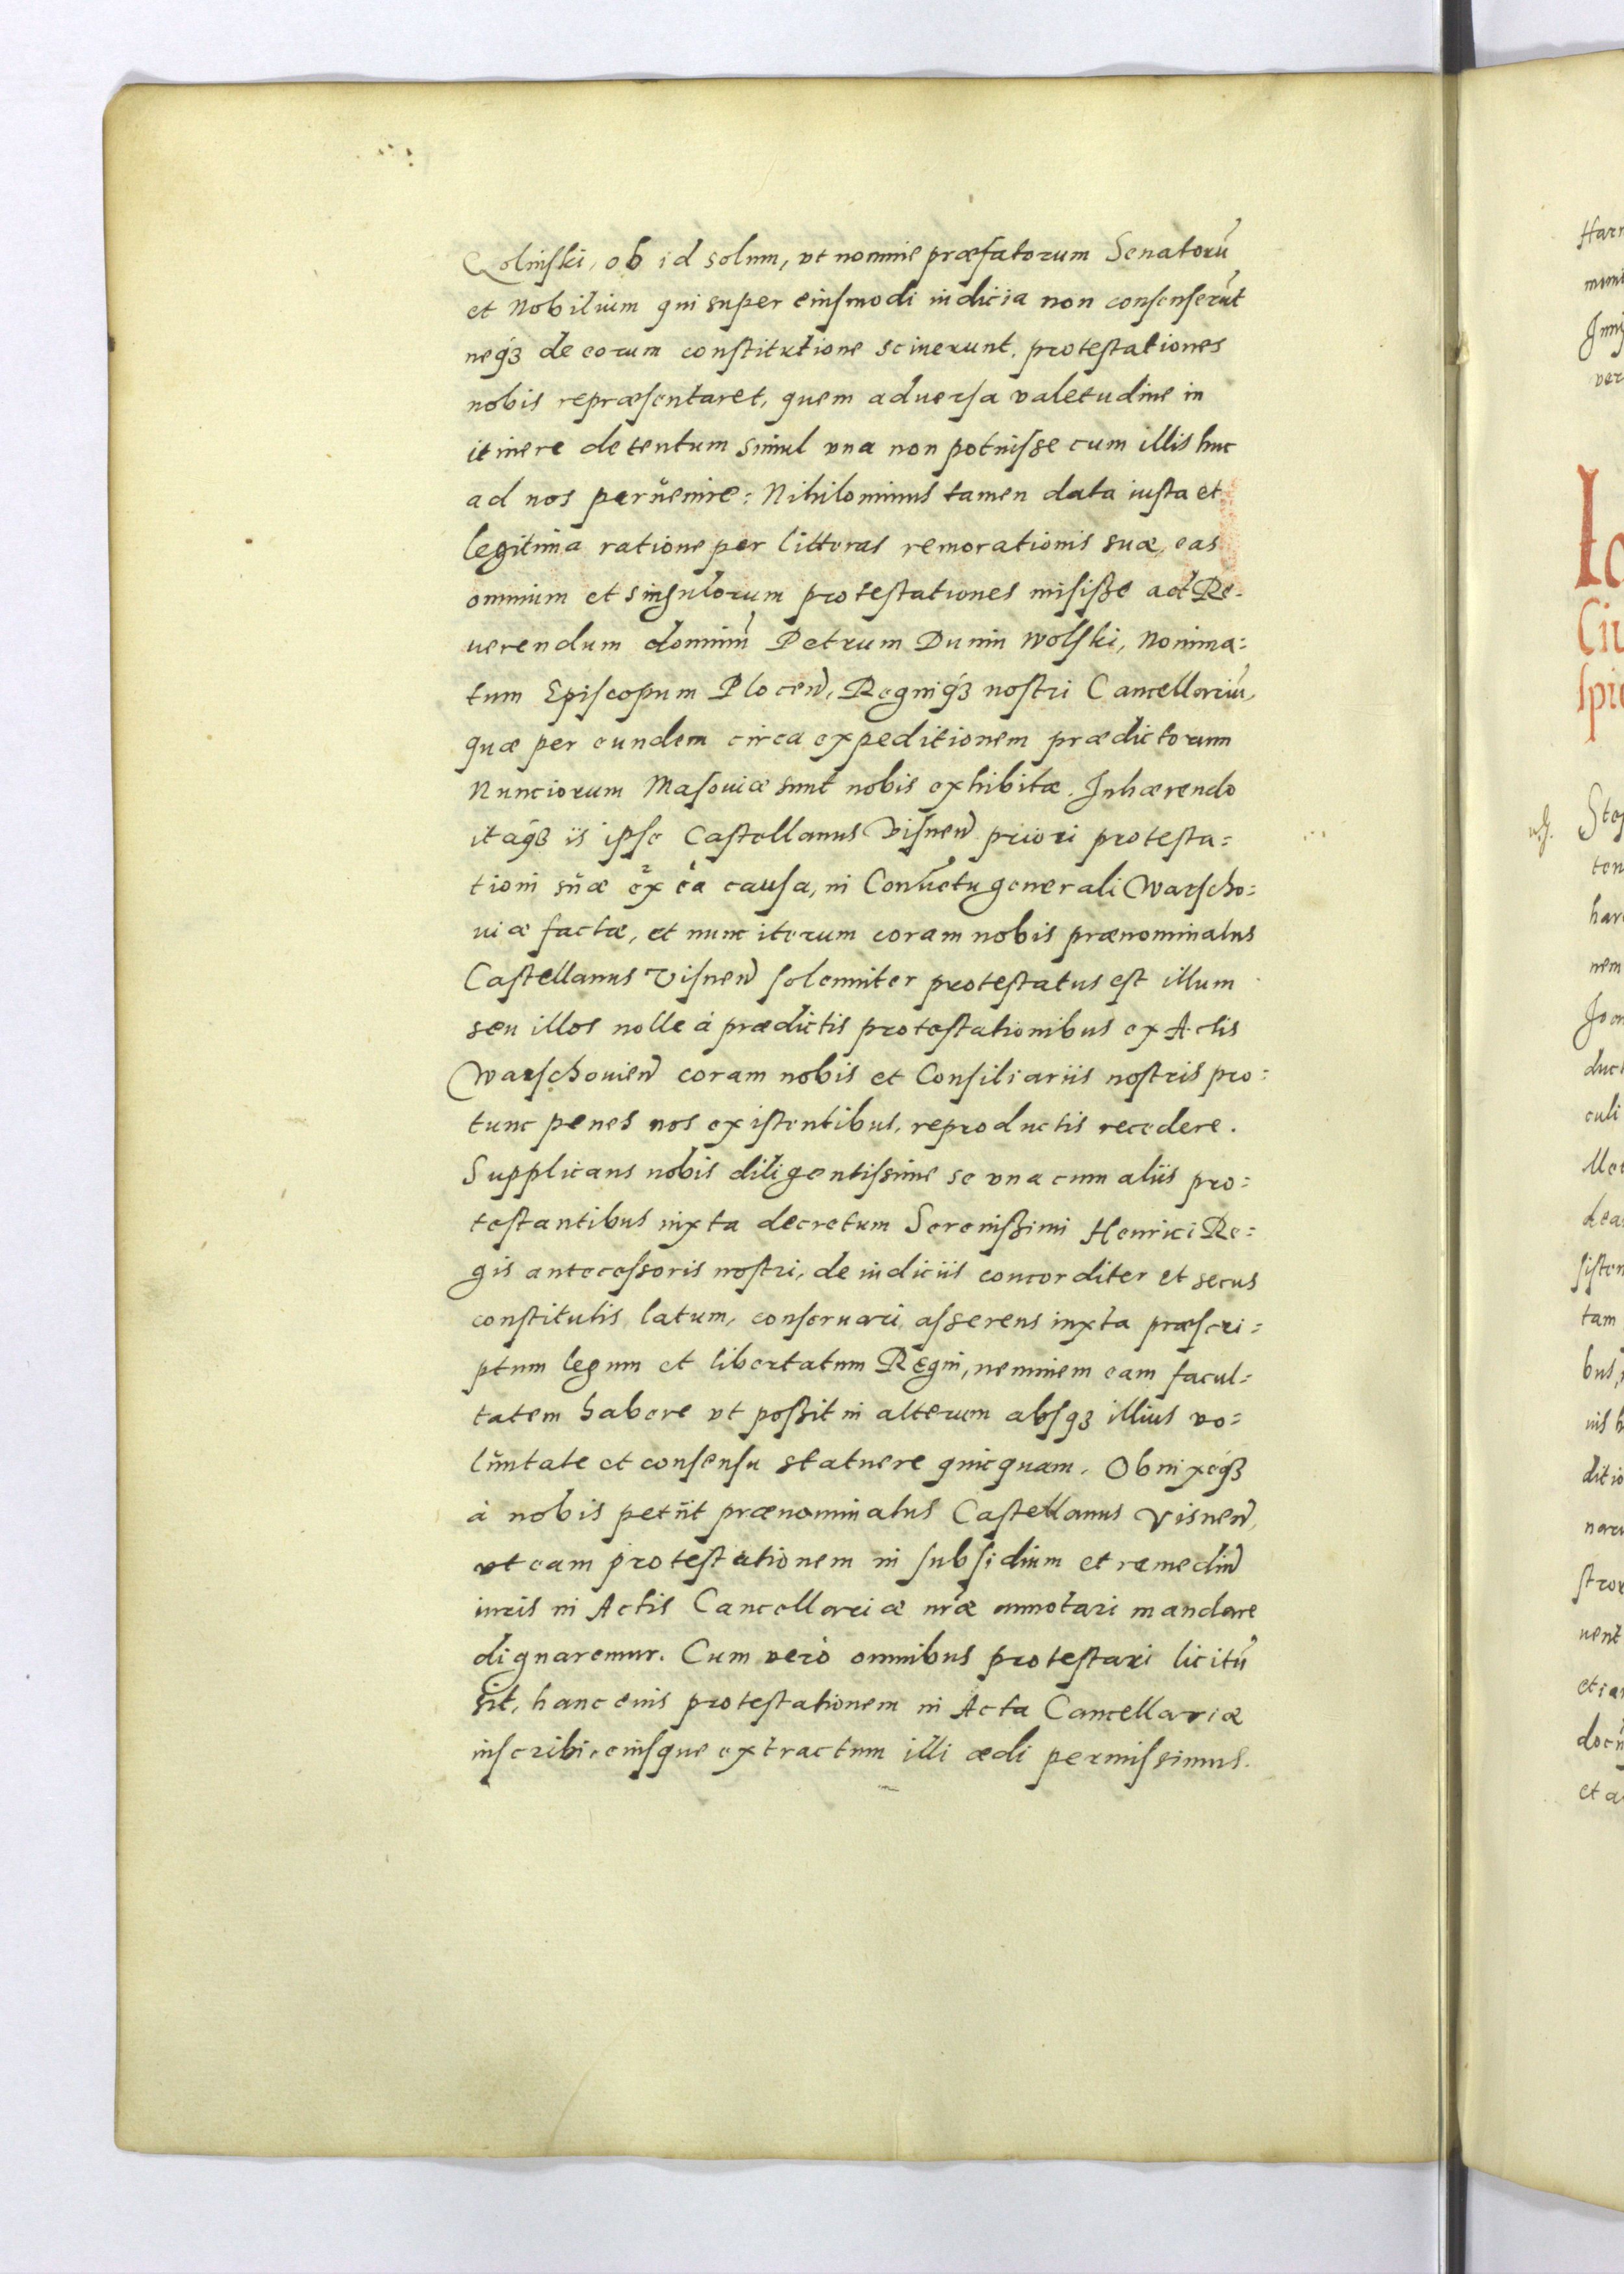 Qolinski, ob id solum, vt nomine præfatorum Senatorũ
et Nobilium qui super eiusmodi iudicia non consenserũt
neq́ꝫ de eorum constitutione sciuerunt, protestationes
nobis repræsentaret, quem aduersa valetudine in
itinere detentum simul vna non potuisse cum illis huc
ad nos peruenire: Nihilominus tamen data iusta et
legitima ratione per litteras remorationis suæ, eas
omnium et singulorum protestationes misiße ad Re-
uerendum dominũ Petrum Dunin Wolski, Nomina=
tum Episcopum Plocen̄, Regniq́ꝫ nostri Cancellariũ,
quæ per eundem circa expeditionem prædictorum
Nunciorum Masouiæ sunt nobis exhibitæ. Inhærendo
itaq́ꝫ iis ipse Castellanus Visnen̄ priori protesta=
tioni suæ ex ea causa, in Conuentu generali Warscho=
uiæ factæ, et nunc iterum coram nobis prænominatus
Castellanus Visnen̄ solemniter protestatus est illum
seu illos nolle à prædictis protestationibus ex Actis
Warschouien̄ coram nobis et Consiliariis nostris pro=
tunc penes nos existentibus, reproductis recedere.
Supplicans nobis diligentissime se vna cum aliis pro=
testantibus iuxta decretum Serenißimi Henrici Re=
gis antecessoris nostri, de iudiciis concorditer et secus
constitutis latum, conseruari, asserens iuxta præscri=
ptum legum et libertatum Regni, neminem eam facul=
tatem habere vt poßit in alterum absqꝫ illius vo=
luntate et consensu statuere quicquam. Obnixeq́ꝫ
à nobis petijt prænominatus Castellanus Visnen̄,
vt eam protestationem in subsidium et remediũ
iuris in Actis Cancellariæ nr̃æ annotari mandare
dignaremur. Cum verò omnibus protestari licitũ
sit, hanc eius protestationem in Acta Cancellariæ
inscribi, eiusque extractum illi ædi permissimus.